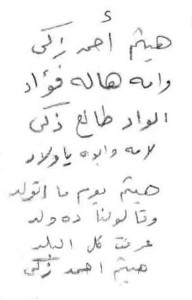 هيثم أحمد زكى
وامه هاله فؤاد
الواد طالع ذكى
لامه وابوه ياولاد
هيثم يوم ما اتولد
وقالولنا ده ولد
عرفت كل البلد
هيثم احمد زكى